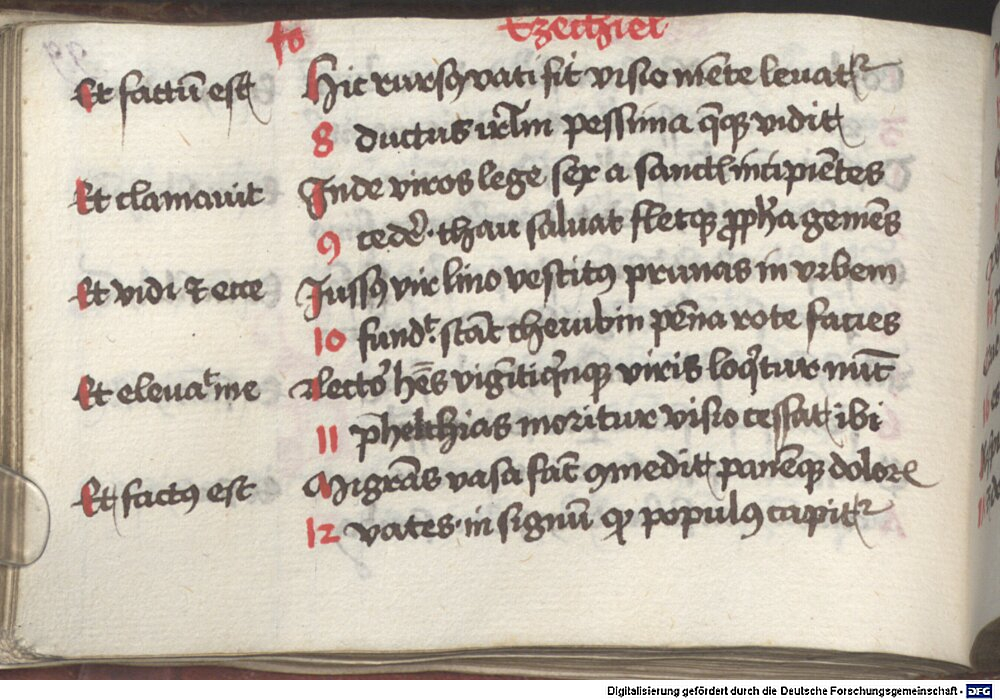 fo Ezechiel
Et factū est Hic rursꝯ vati fit visio mēte leuatꝛ
8 ductus irl̄m pessima q̄qꝫ vidit
Et clamauit Inde viros lege sex a sanctl̄ incipiētes
9 cedē · thau saluat fletqꝫ ꝓph̄a gemēs
Et vidi & ecce Jussꝯ vir lino vestitꝯ prunas in vrbem
10 fundt · stāt cherubin pēna rote facies
Et eleuat me Rectoēs vigīntiqꝫ viris loqͥtur nūt
11 phelthias moritur visio cessat ibi
Et factꝯ est Migrās vasa fāt ꝯmedit panēqꝫ dolore
12 vates · in signū qͦ populꝯ capitꝛ
Digitalisierung gefördert durch die Deutsche Forschungsgemeinschaft - DFG